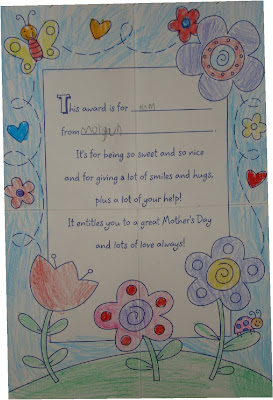 This award is for mom
from
It's for being so sweet and so nice
and for giving a lot of smiles and hugs,
plus a lot of your help!
It entitles you to a great Mother's Day
and lots of love always!